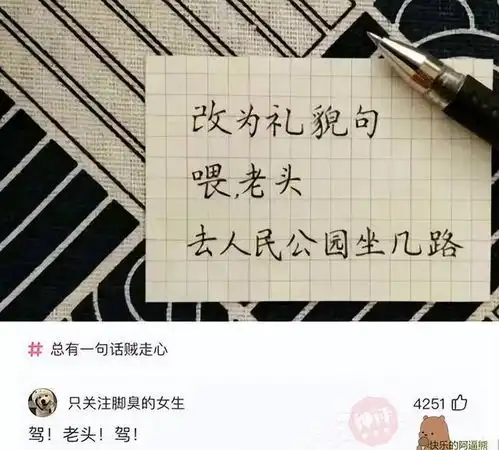 改为礼貌句
喂,老头
去人民公园坐几路
# 总有一句话贼走心
只关注脚臭的女生
4251
驾！老头！驾！
快乐的阿逼熊